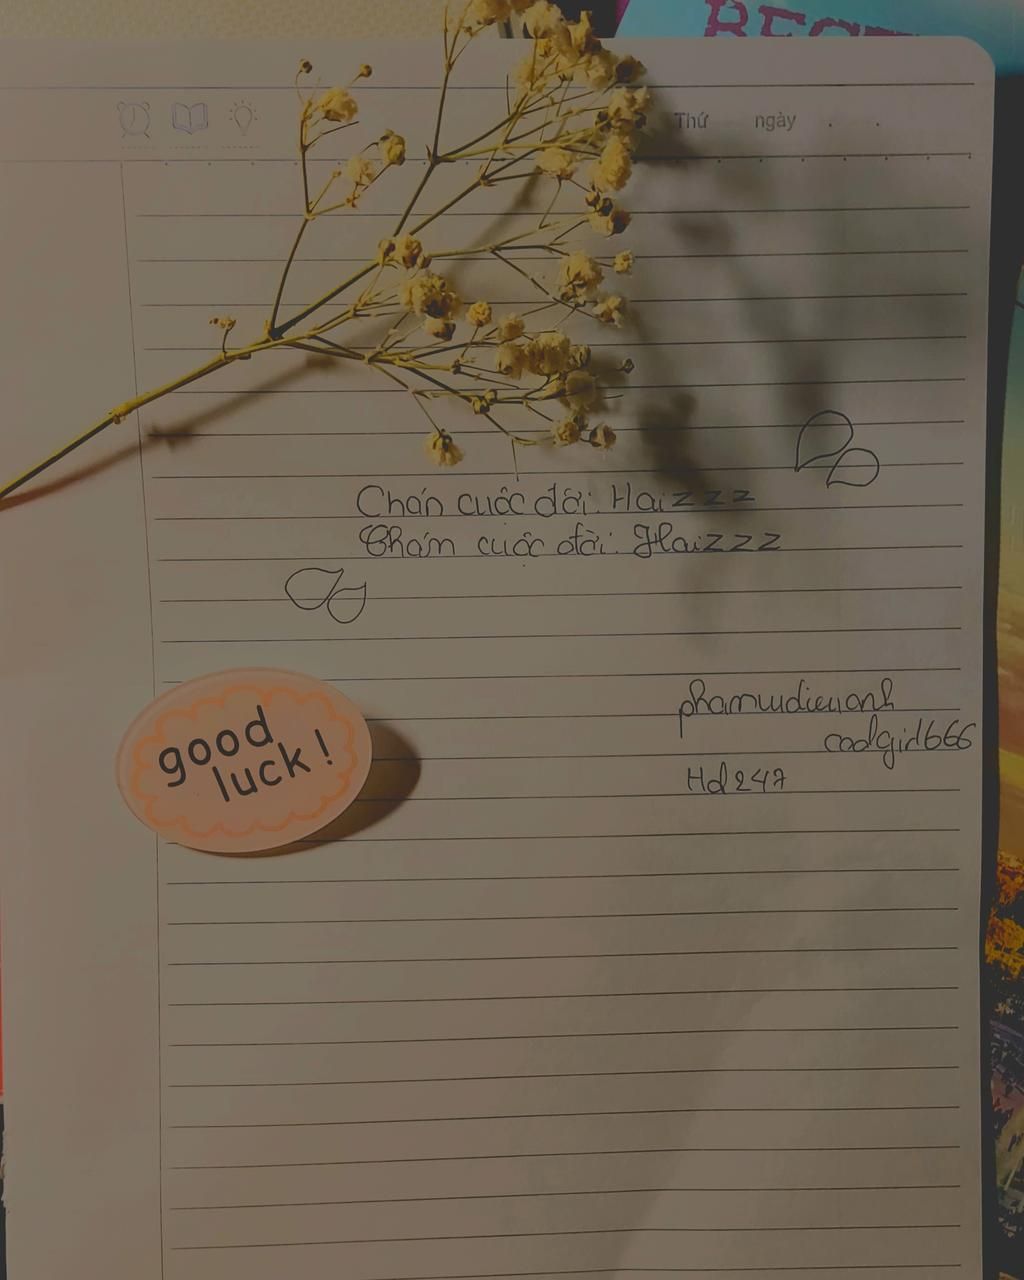 BEST
Thứ ngày . .
Chán cuộc đời. Haizzz
Chán cuộc đời. Haizzz
good
luck!
phamvudieuanh
coolgirl666
Hd247